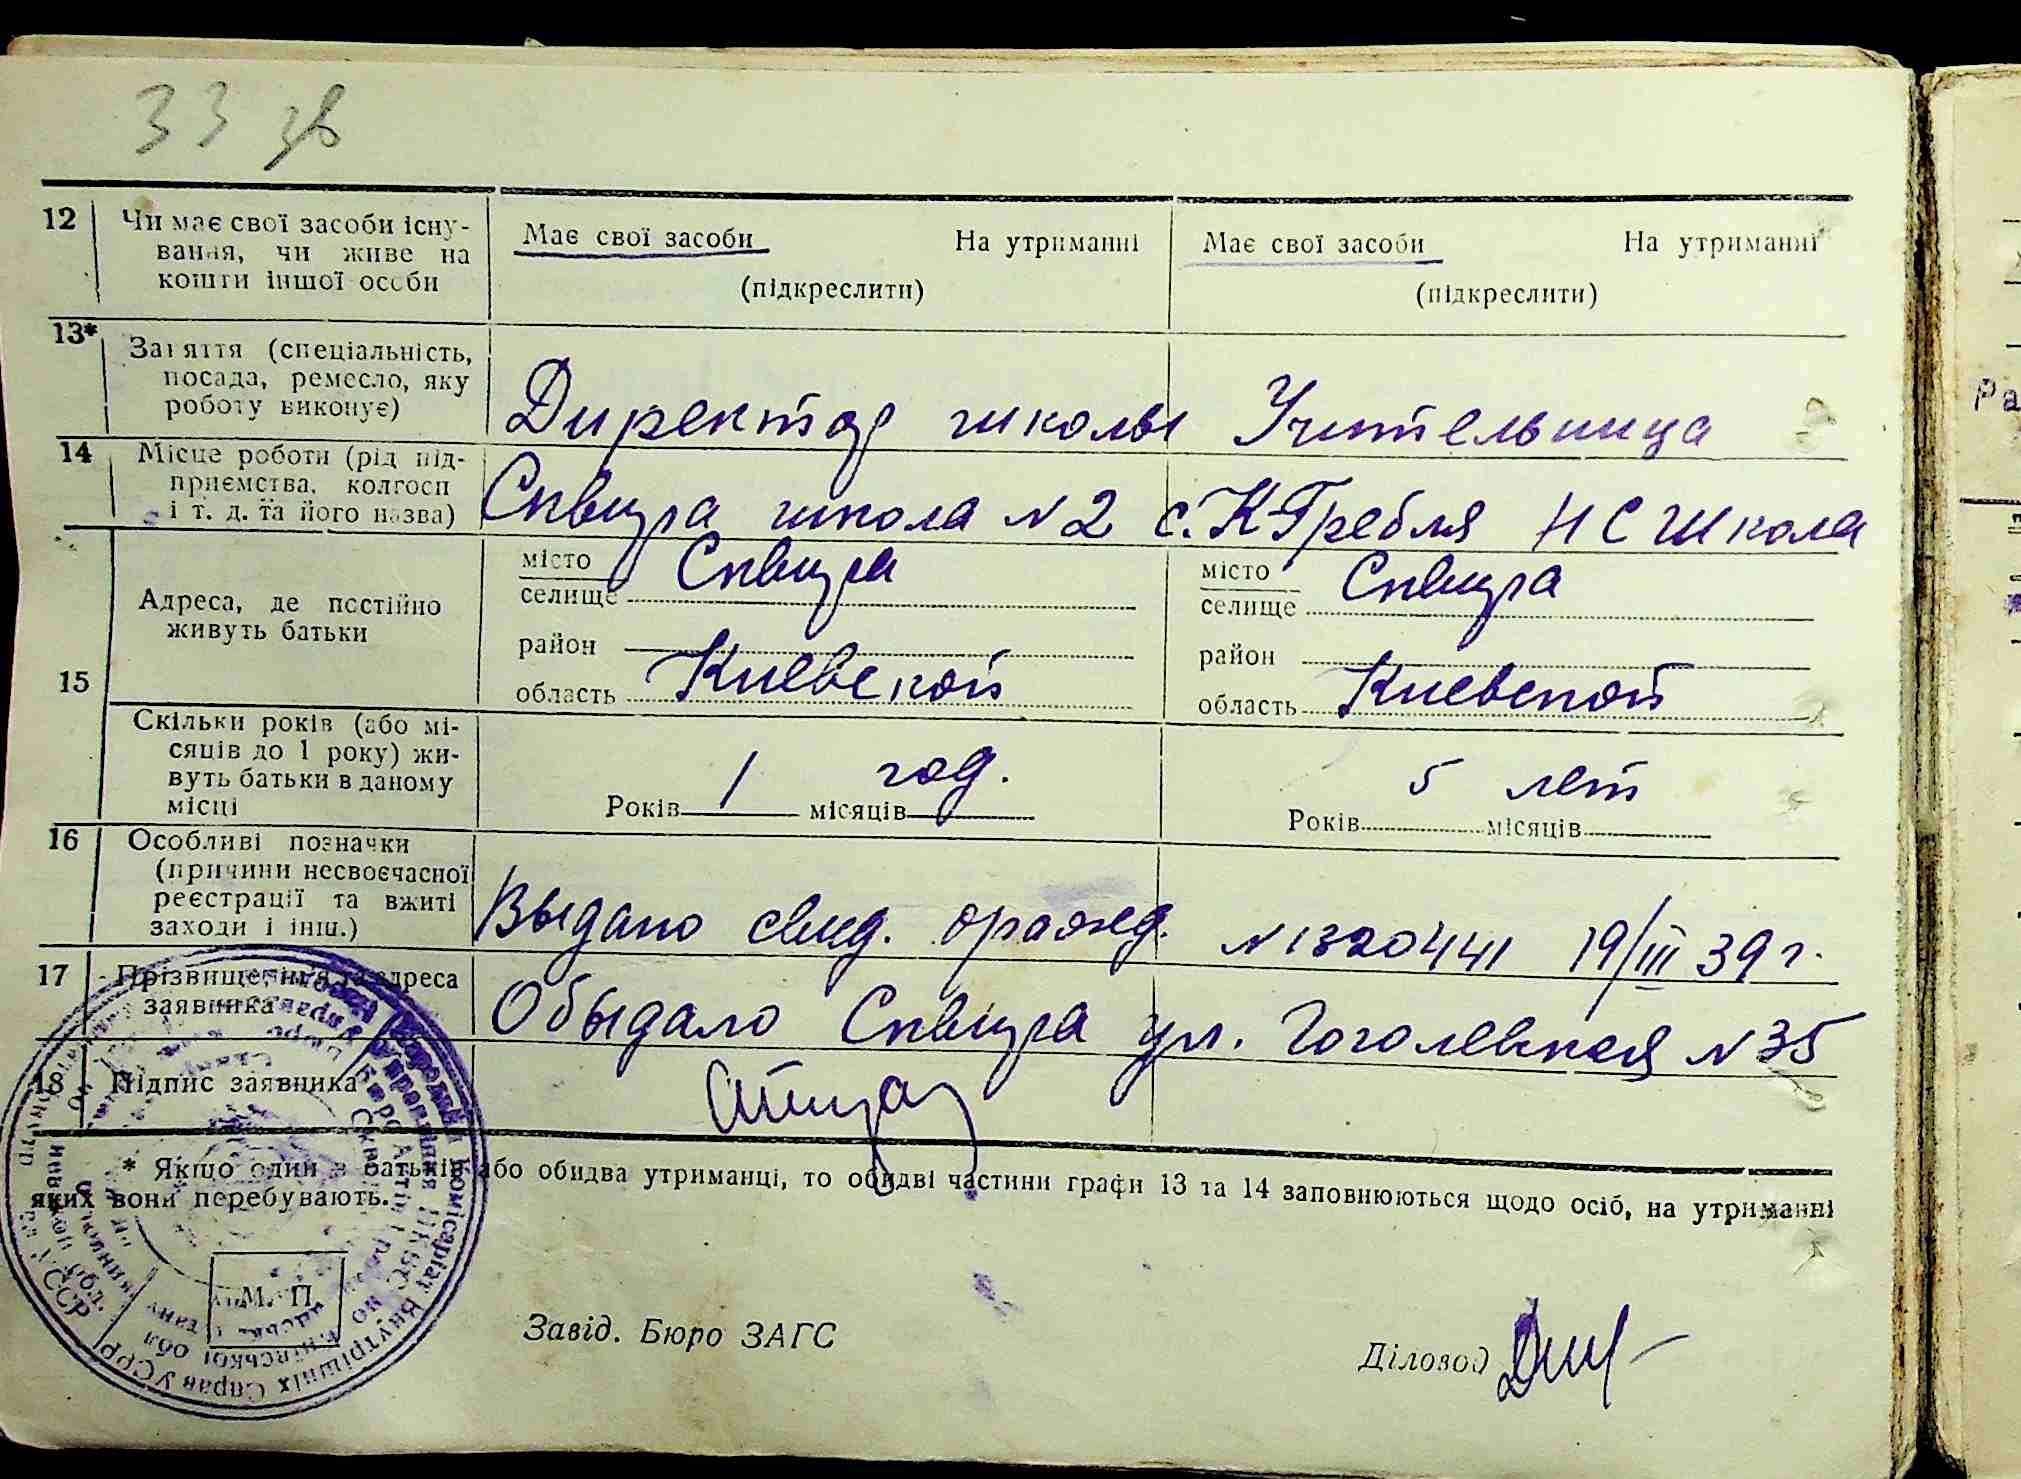 33 зв
12 Чи має свої засоби існу- Має свої засоби На утриманні Має свої засоби На утриманні
вання, чи живе на
кошти іншої особи (підкреслити) (підкреслити)
13* Заняття (спеціальність,
посада, ремесло, яку
роботу виконує) Директор школы Учительница
14 Місце роботи (рід під-
приємства, колгосп
і т. д. та його назва) Сквира школа № 2 с. К Гребля НСШкола
15
Адреса, де постійно
живуть батьки
місто
селище Сквира
район
область Киевской
місто
селище Сквира
район
область Киевской
15
Скільки років (або мі-
сяців до 1 року) жи-
вуть батьки в даному
місці
Років 1 місяців год.
5 лет
Років місяців
16 Особливі позначки
(причини несвоєчасної
реєстрації та вжиті
заходи і інш.) Выдано свид. оражд. № 1320441 19/III 39 г.
17 Прізвище, ім'я та адреса
заявника Сквира ул. Гоголевская № 35
18 Підпис заявника
* Якщо один з батьків або обидва утриманці, то обидві частини графи 13 та 14 заповнюються щодо осіб, на утриманні
яких вони перебувають.
М. П.
Завід. Бюро ЗАГС
Діловод
Народній Комісаріят Внутрішніх Справ УСРР
Ра